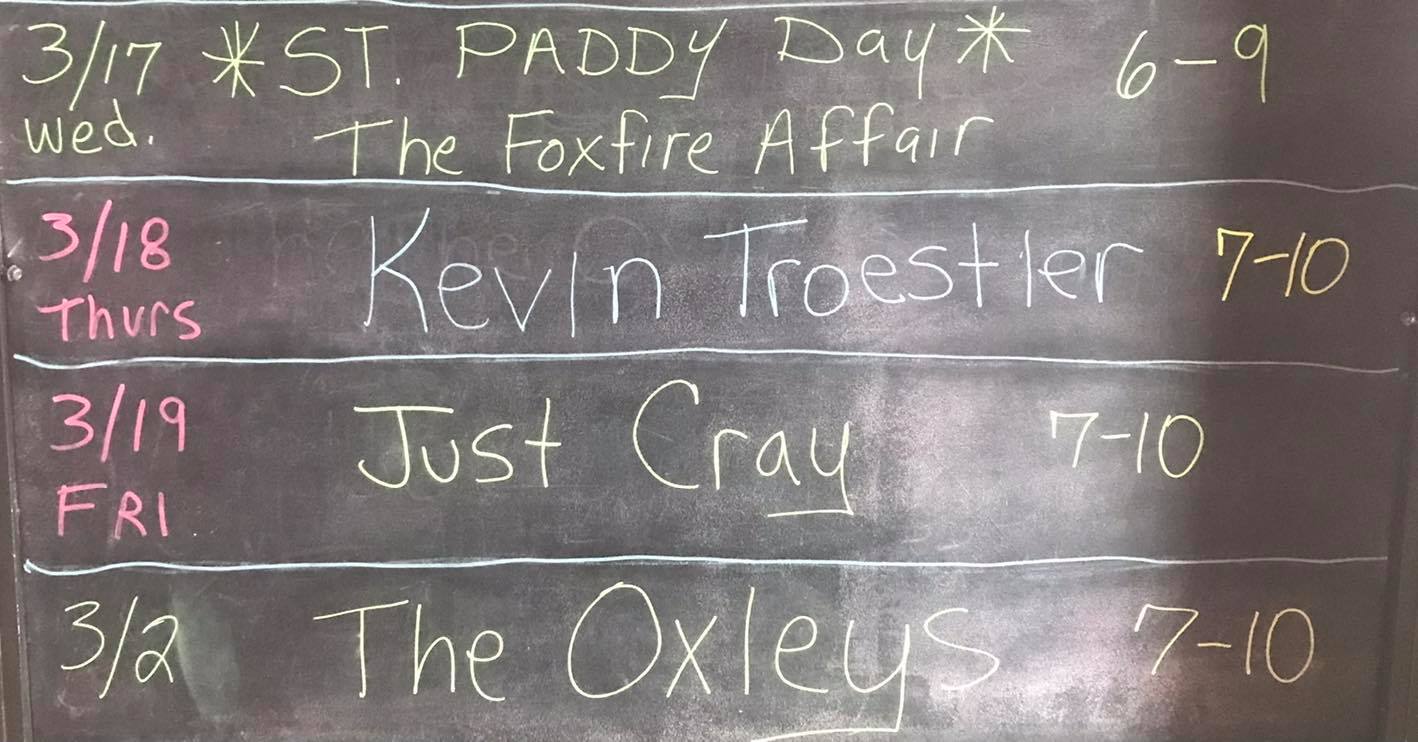 3/17 *ST. PADDY Day* 6-9
Wed. The Foxfire Affair
3/18 Kevin Troestler 7-10
Thurs
3/19 Just Cray 7-10
FRI
3/2 The Oxleys 7-10